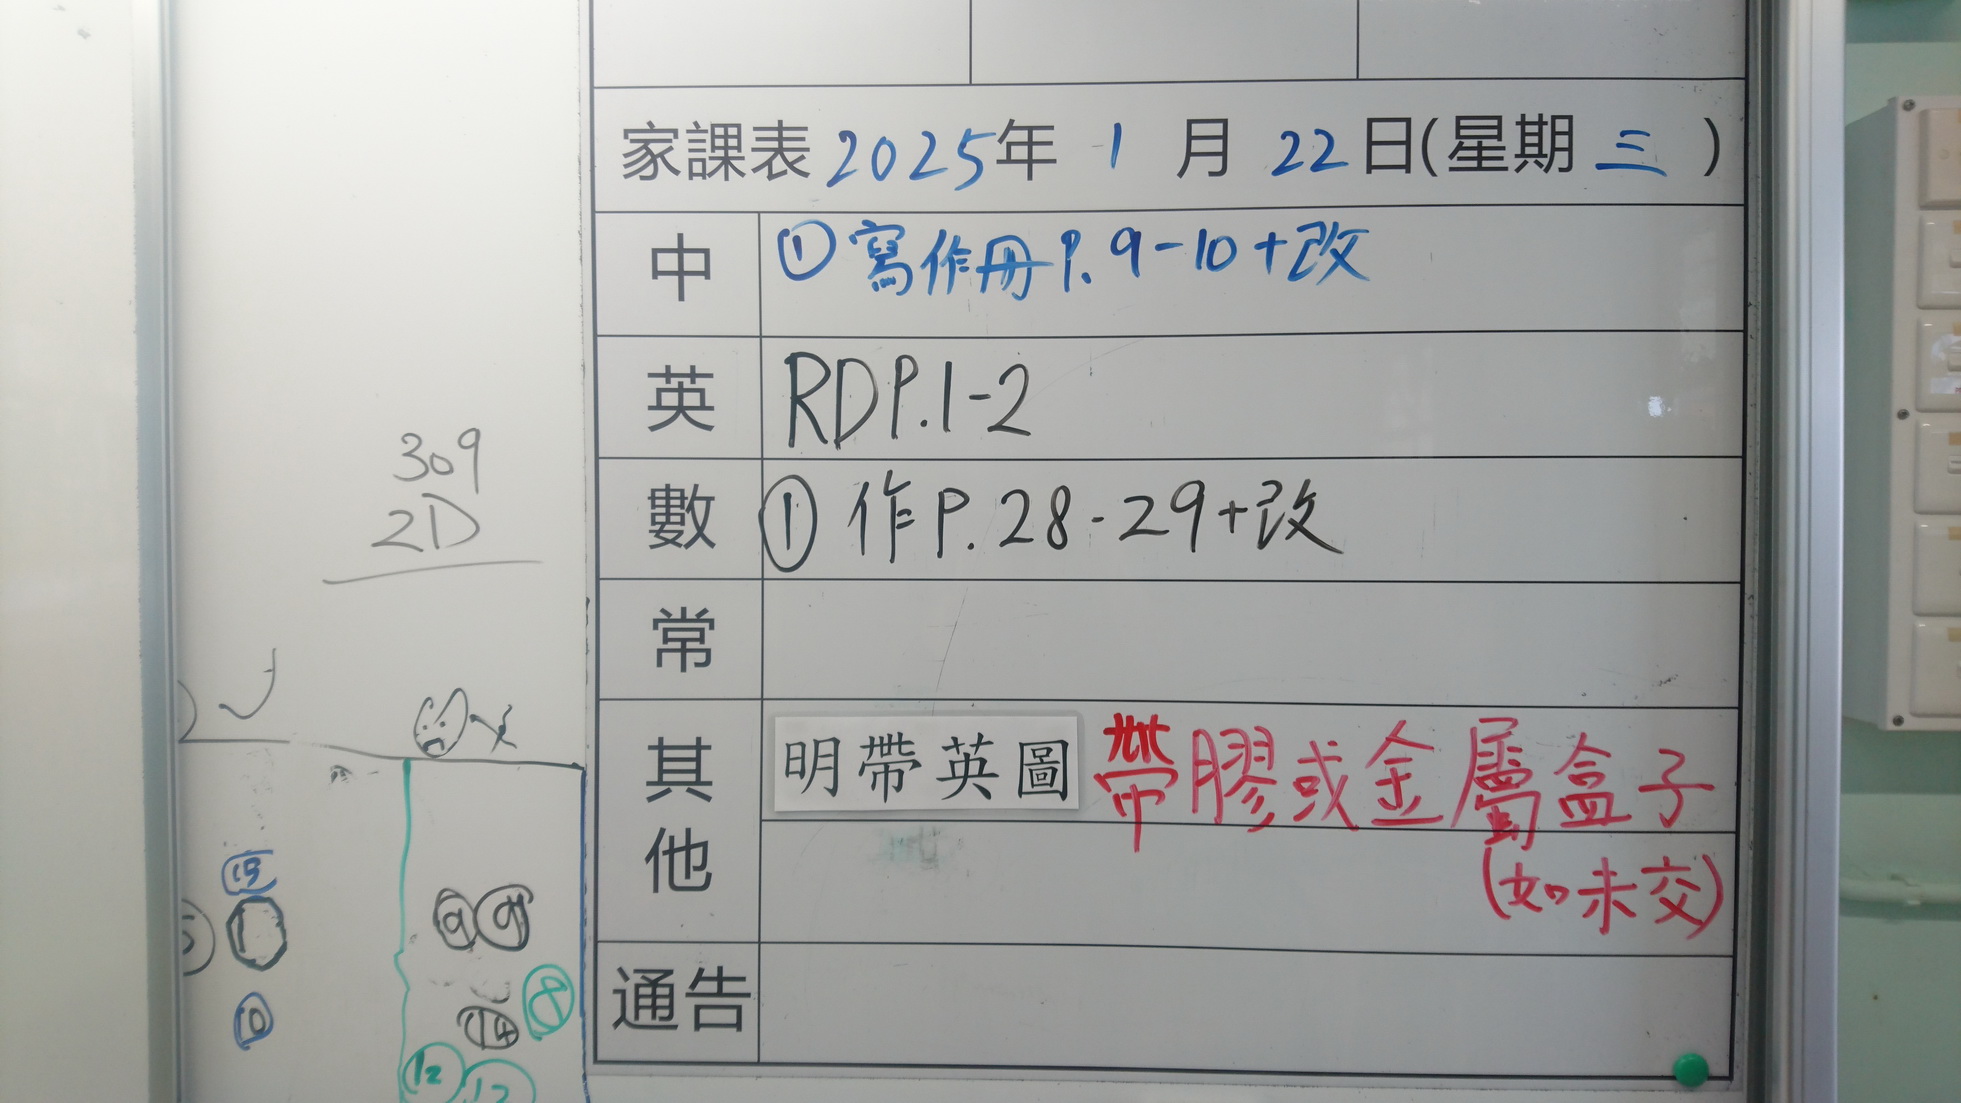 家課表2025年 1 月 22日(星期 三 )
中 ①寫作冊P.9-10+改
英 RDP.1-2
數 ① 作P.28-29+改
常
其他 明帶英圖 帶膠或金屬盒子
(如未交)
通告
309
2D
15
9 9
1
10
14 8
12 12